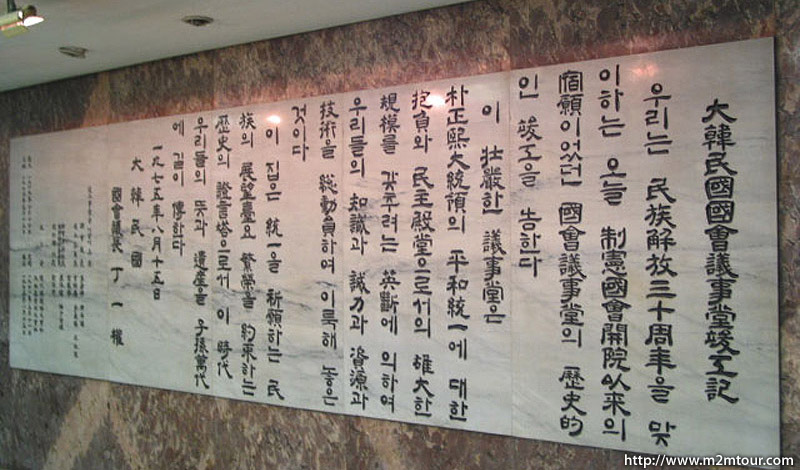 大韓民國國會議事堂竣工記
우리는 民族解放三十周年을 맞
이하는 오늘 制憲國會開院以來의
宿願이었던 國會議事堂의 歷史的
인 竣工을 告한다
이 壯嚴한 議事堂은
朴正熙大統領의 平和統一에 대한
抱負와 民主殿堂으로서의 雄大한
規模를 갖추려는 英斷에 의하여
우리들의 知識과 誠力과 資源과
技術을 總動員하여 이룩해 놓은
것이다
이 집은 統一을 祈願하는 民
族의 展望臺요 繁榮을 約束하는
歷史의 證言塔으로서 이 時代
우리들의 뜻과 遺產을 子孫萬代
에 길이 傳한다
一九七五年八月十五日
大韓民國
國會議長 丁一權
http://www.m2mtour.com